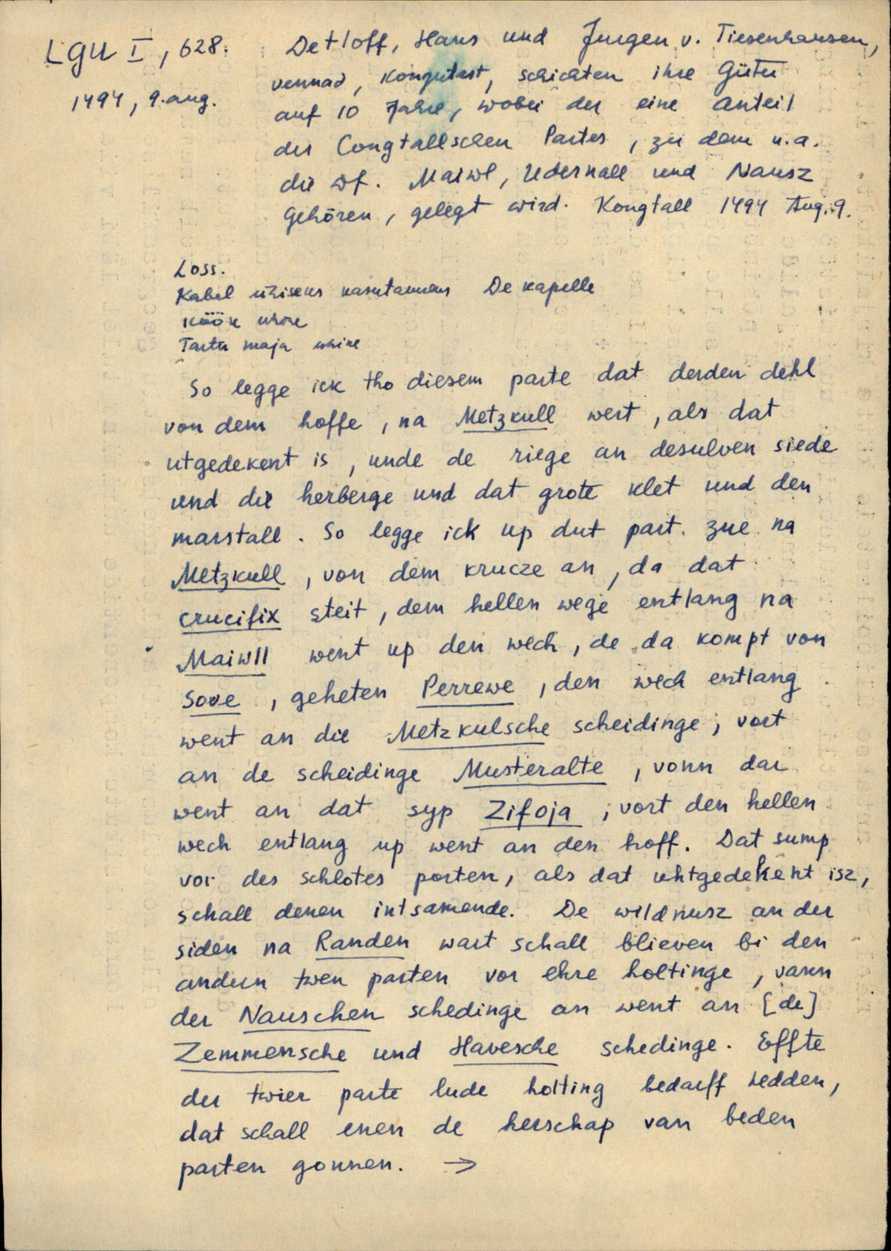 LGU I, 628.
1494, 9. aug.
Detloff, Hans und Jurgen v. Tiesenhausen,
vennad, Kongutast, schichten ihre Güter
auf 10 Jahre, wobei der eine Anteil
des Congtallschen Partes, zu dem u.a.
die Df. Maiwl, Udernall und Nausz
gehören, gelegt wird. Kongtall 1494 Aug. 9.
Loss.
Kabel ühiseks kasutamiseks De kapelle
Köök
Tartu maja
So legge ick tho diesem parte dat derden dehl
von dem hoffe, na Metzkull wert, als dat
utgedekent is, unde de riege an desulven siede
und die herberge und dat grote klet und den
marstall. So legge ick up dut part. zue na
Metzkull, von dem krucze an, da dat
crucifix steit, dem hellen wege entlang na
Maiwll went up den wech, de da kompt von
Sove, geheten Perrewe, den wech entlang
went an die Metzkulsche scheidinge; vort
an de scheidinge Musteralte, vonn dar
went an dat syp Zifoja; vort den hellen
wech entlang up went an den hoff. Dat sump
vor des schlotes porten, als dat uhtgedekent isz,
schall denen intsamende. De wildnusz an der
siden na Randen wart schall blieven bi den
andern twen parten vor ehre holtinge, vann
der Nauschen schedinge an went an [de]
Zemmensche und Havesche schedinge. Effte
der twier parte lude holting bedarff hedden,
dat schall enen de herschap van beden
parten gonnen. →